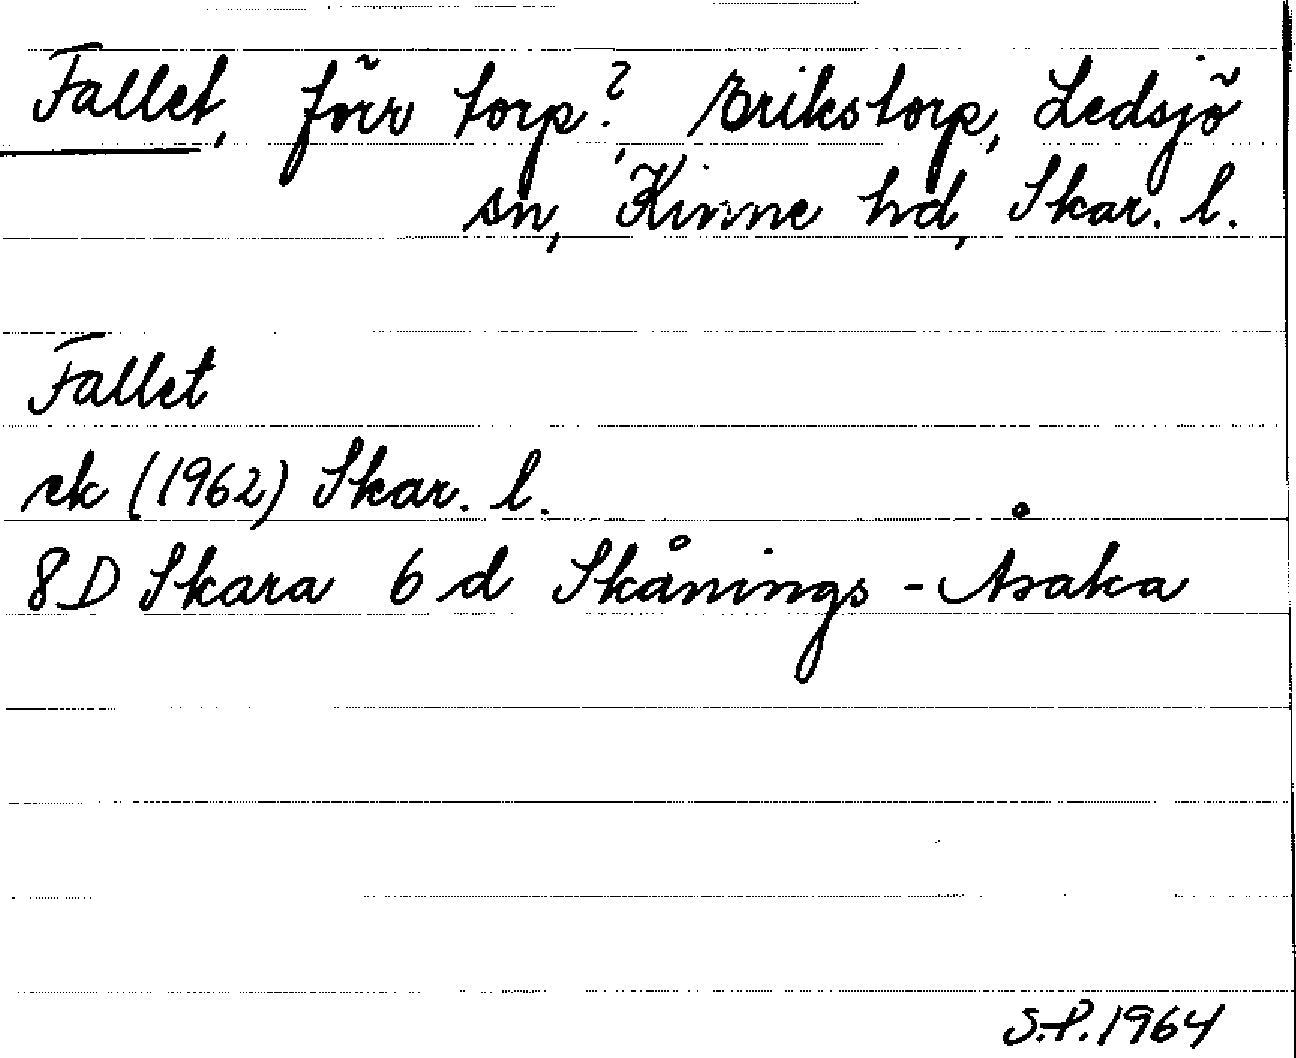 Fallet, förr torp?, Erikstorp, Ledsjö
sn, Kinne hd, Skar. l.
Fallet
ek (1962) Skar. l.
8D Skara 6 d Skånings-Åsaka
S.P. 1964